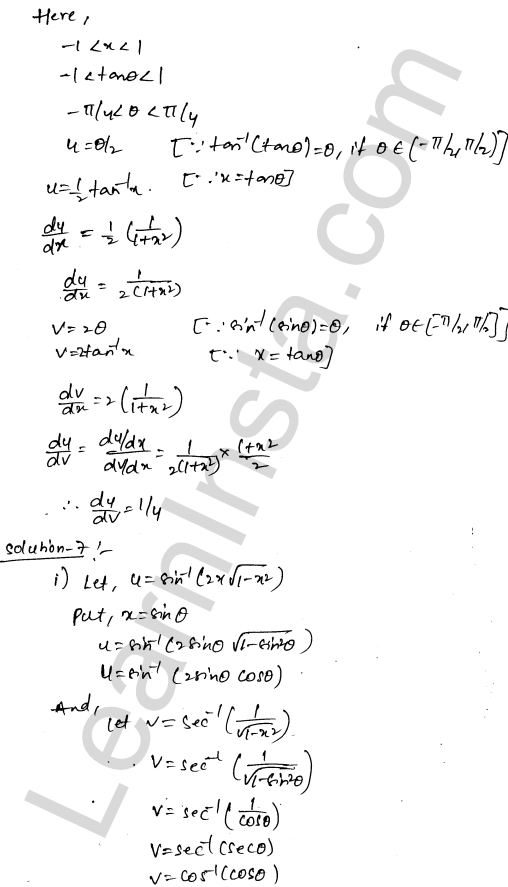 Here,
-1 < x < 1
-1 < tanθ < 1
-π/4 < θ < π/4
u = θ/2 [∵ tan⁻¹(tanθ) = θ, if θ ∈ (-π/2, π/2)]
u = 1/2 tan⁻¹x. [∵ x = tanθ]
du/dx = 1/2 (1/(1+x²))
du/dx = 1/(2(1+x²))
V = 2θ [∵ sin⁻¹(sinθ) = θ, if θ ∈ [-π/2, π/2]]
V = 2tan⁻¹x [∵ x = tanθ]
dv/dx = 2 (1/(1+x²))
du/dv = (du/dx)/(dv/dx) = 1/(2(1+x²)) × (1+x²)/2
∴ du/dv = 1/4
Solution-7 :-
i) Let, u = sin⁻¹(2x√(1-x²))
Put, x = sinθ
u = sin⁻¹(2sinθ √(1-sin²θ))
u = sin⁻¹(2sinθ cosθ)
And,
Let v = sec⁻¹(1/√(1-x²))
V = sec⁻¹(1/√(1-sin²θ))
V = sec⁻¹(1/cosθ)
V = sec⁻¹(secθ)
V = cos⁻¹(cosθ)
LearnInsta.com